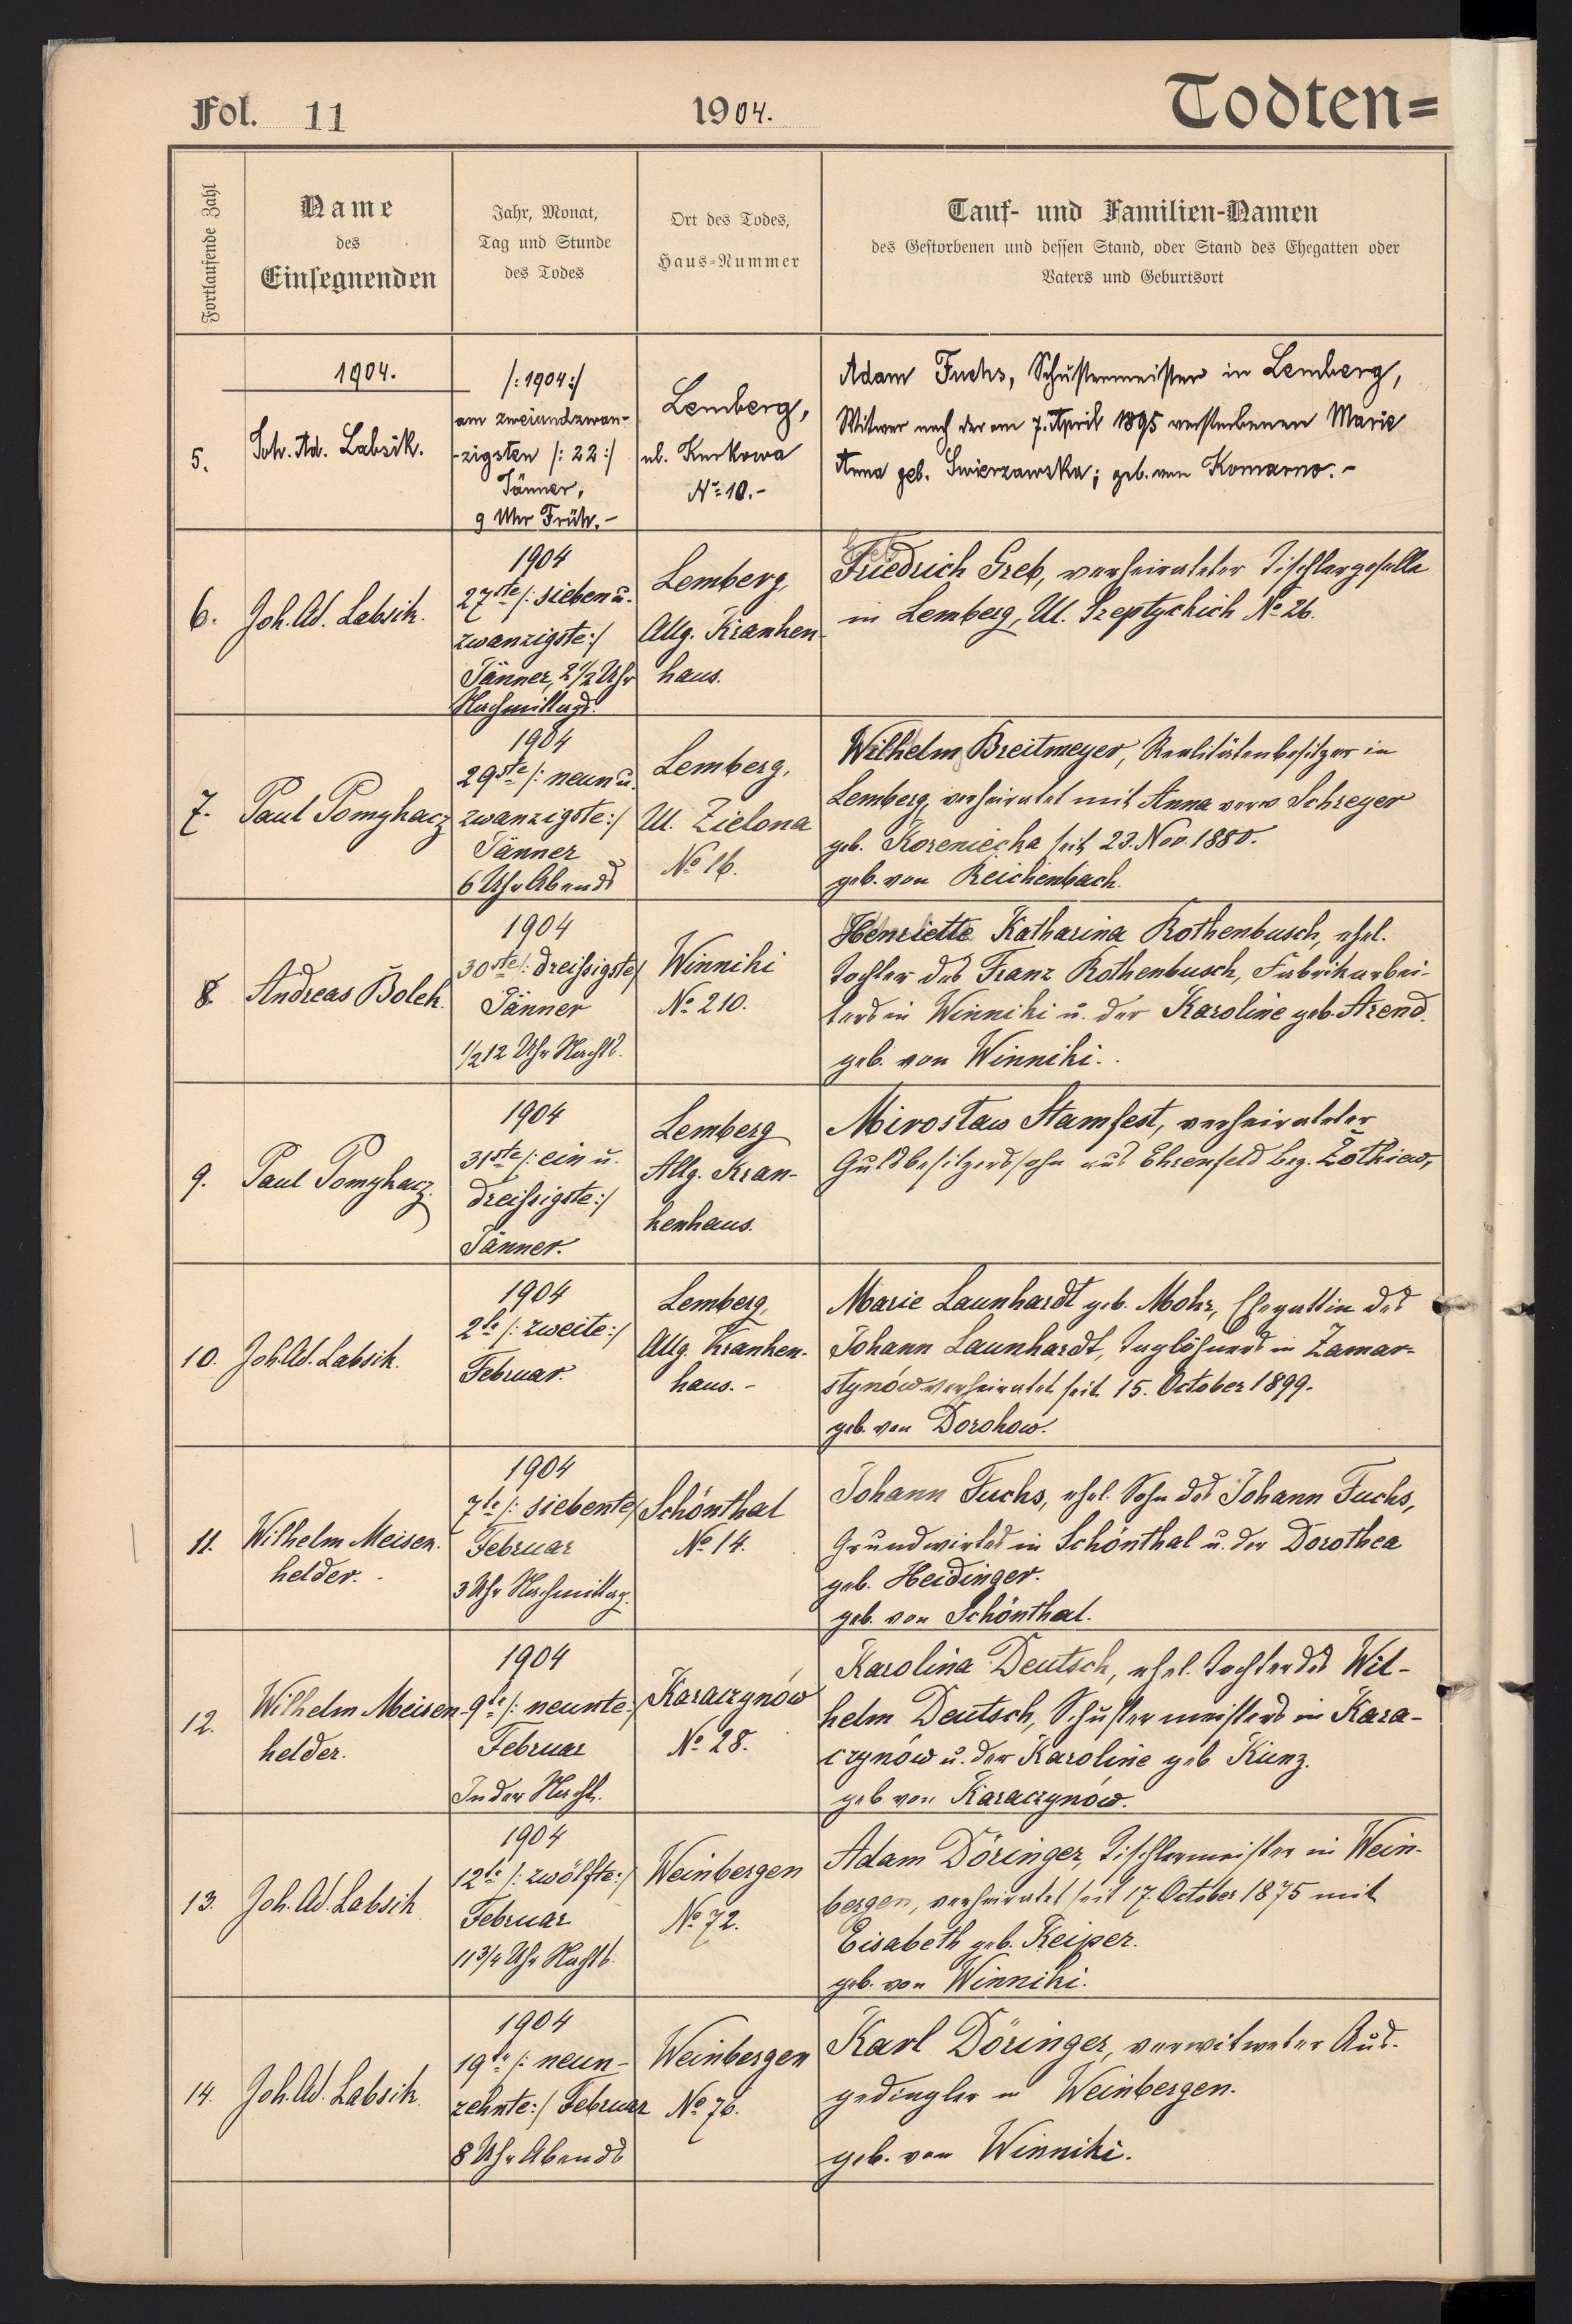 Fol. 11
1904.
Todten=
Fortlaufende Zahl
Name
des
Einsegnenden
Jahr, Monat,
Tag und Stunde
des Todes
Ort des Todes,
Haus-Nummer
Tauf- und Familien-Namen
des Gestorbenen und dessen Stand, oder Stand des Ehegatten oder
Vaters und Geburtsort
1904.
5.
Joh. Ad. Labsik.
/:1904:/
am zweiundzwan-
-zigsten /:22:/
Jänner,
9 Uhr Früh.-
Lemberg,
ul. Kurkowa
No 10.-
Adam Fuchs, Schustermeister in Lemberg,
Witwer nach der am 7. April 1895 verstorbenen Marie
Anna geb. Swierzawska; geb. von Komarno.-
6.
Joh. Ad. Labsik.
1904
27ste /: sieben u.
zwanzigste:/
Jänner, 2 1/2 Uhr
Nachmittags.
Lemberg,
Allg. Kranken-
haus.
Friedrich Greb, verheirateter Tischlergeselle
in Lemberg, Ul. Szeptyckich No 26.
7.
Paul Pomykacz
1904
29ste /: neun u.
zwanzigste:/
Jänner
6 Uhr Abends
Lemberg,
Ul. Zielona
No 16.
Wilhelm Breitmeyer, Realitätenbesitzer in
Lemberg, verheiratet mit Anna verw Schreyer
geb. Koreniecka seit 23. Nov. 1880.
geb. von Reichenbach.
8.
Andreas Bolek.
1904
30ste /: dreißigste/
Jänner
1/2 12 Uhr Nachts.
Winniki
No 210.
Henriette Katharina Rothenbusch, ehel.
Tochter des Franz Rothenbusch, Fabrikarbei-
ters in Winniki u. der Karoline geb. Arend.
geb. von Winniki.
9.
Paul Pomykacz.
1904
31ste /: ein u.
dreißigste:/
Jänner.
Lemberg
Allg. Kran-
kenhaus.
Mirosław Stamfest, verheirateter
Gutsbesitzerssohn aus Ehrenfeld bez. Żółkiew,
10.
Joh. Ad. Labsik.
1904
2te /: zweite:/
Februar.
Lemberg,
Allg. Kranken-
haus.-
Marie Launhardt geb. Mohr, Ehegattin des
Johann Launhardt, Taglöhners in Zamar-
stynów verheiratet seit 15. October 1899.
geb. von Dorohow.
11.
Wilhelm Meisen-
helder.-
1904
7te /: siebente/
Februar
3 Uhr Nachmittag.
Schönthal
No 14.
Johann Fuchs, ehel. Sohn des Johann Fuchs,
Grundwirtes in Schönthal u. der Dorothea
geb. Heidinger.
geb. von Schönthal.
12.
Wilhelm Meisen-
helder.
1904
9te /: neunte:/
Februar
In der Nacht.
Karaczynów
No 28.
Karolina Deutsch, ehel. Tochter des Wil-
helm Deutsch, Schustermeisters in Kara-
czynów u. der Karoline geb Kunz.
geb. von Karaczynów.
13.
Joh. Ad. Labsik
1904
12te /: zwölfte:/
Februar
11 3/4 Uhr Nachts.
Weinbergen
No 72.
Adam Döringer, Tischlermeister in Wein-
bergen, verheiratet seit 17. October 1875 mit
Eisabeth geb. Keiper.
geb. von Winniki.
14.
Joh. Ad. Labsik.
1904
19te /: neun-
zehnte:/ Februar
8 Uhr Abends
Weinbergen
No 76.
Karl Döringer, verwitweter Aus-
gedingler in Weinbergen.
geb. von Winniki.